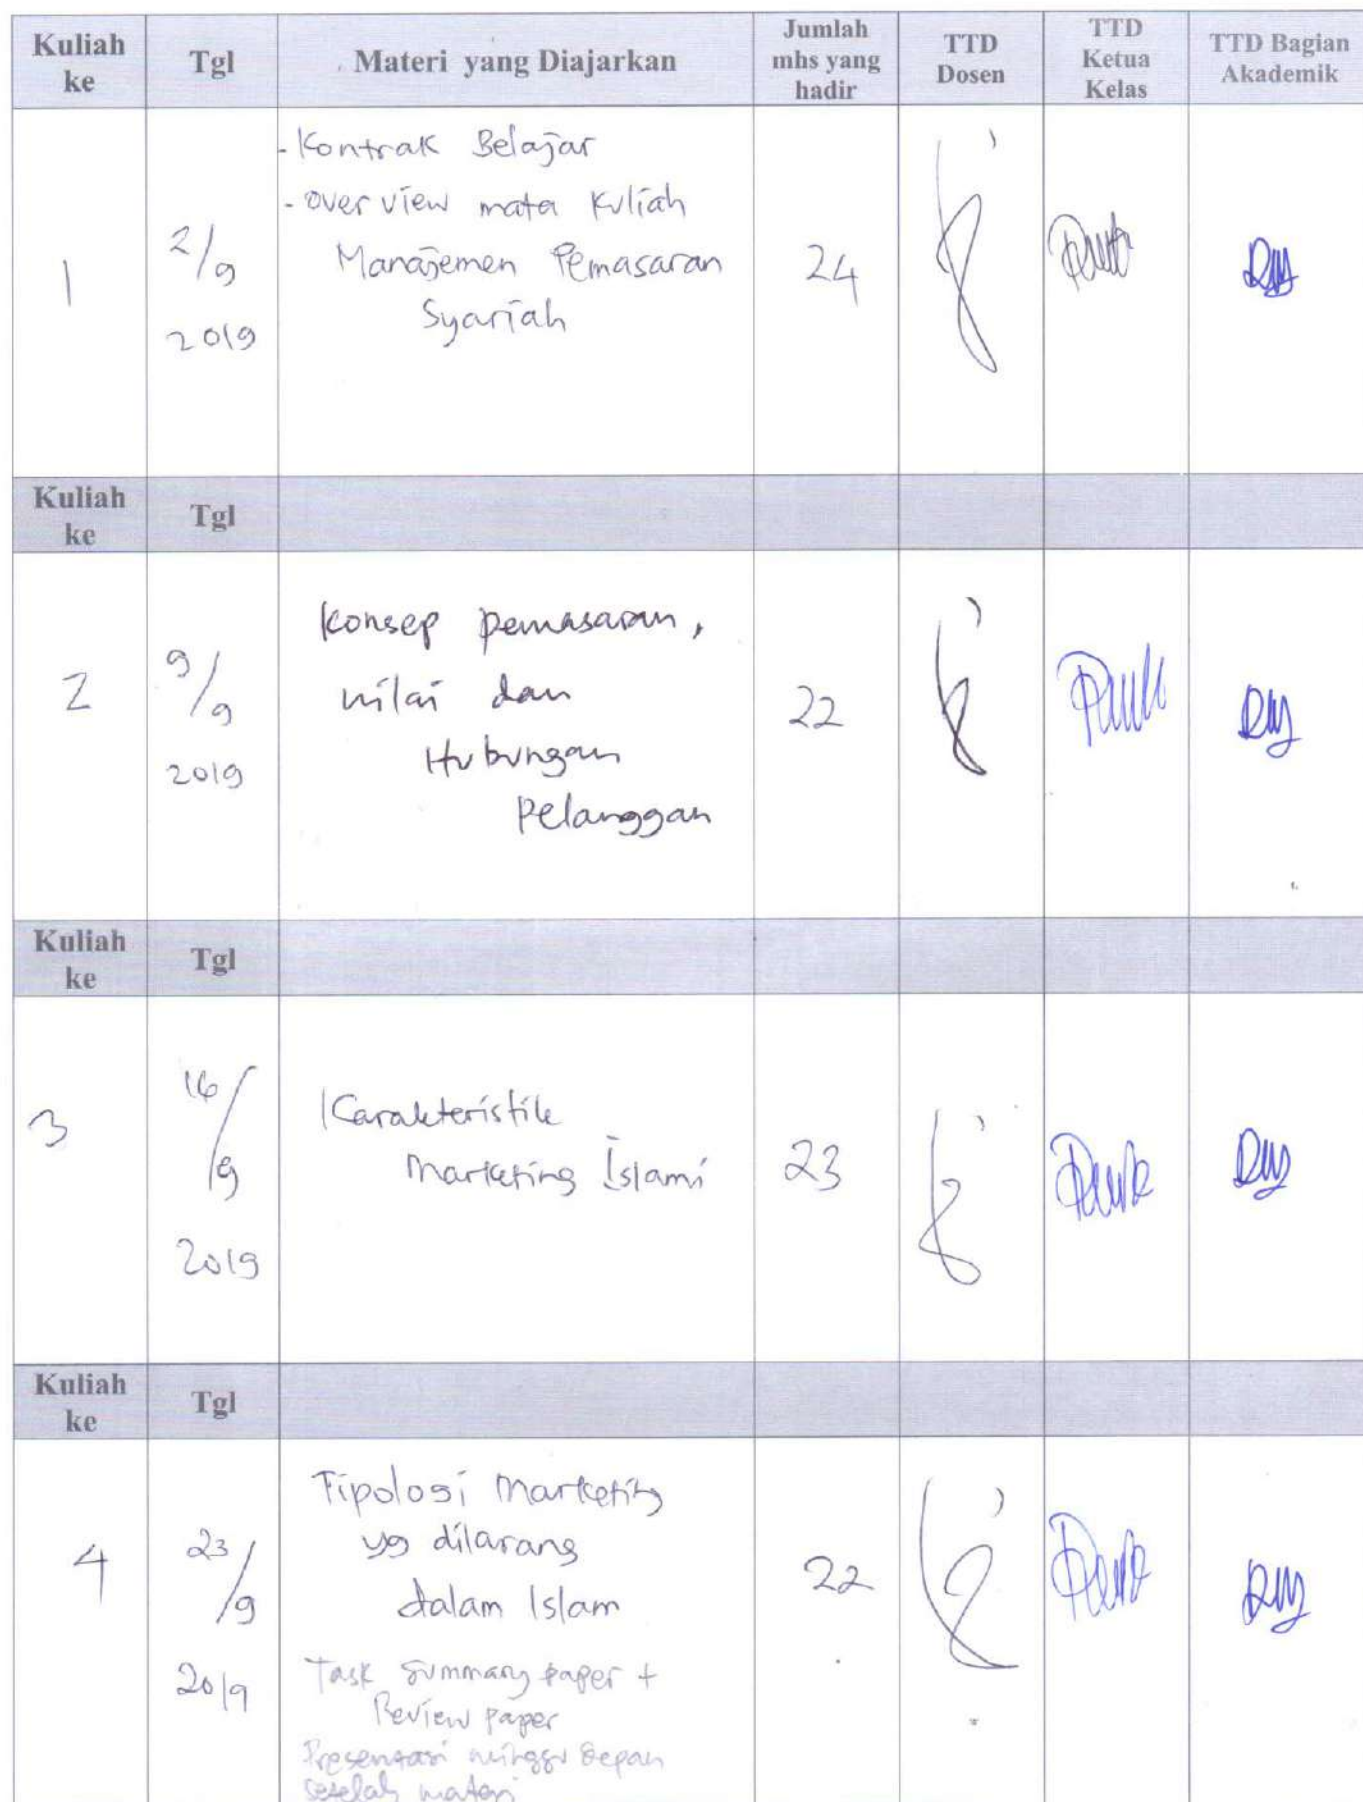 Kuliah ke Tgl Materi yang Diajarkan Jumlah mhs yang hadir TTD Dosen TTD Ketua Kelas TTD Bagian Akademik
- Kontrak Belajar
- overview mata kuliah
Manajemen Pemasaran
Syariah
1 2/9 2019 24
Kuliah ke Tgl
Konsep pemasaran,
nilai dan
Hubungan
Pelanggan
2 9/9 2019 22
Kuliah ke Tgl
Karakteristik
Marketing Islami
3 16/9 2019 23
Kuliah ke Tgl
Tipologi Marketing
yg dilarang
dalam Islam
4 23/9 2019 22
Task summary paper +
Review paper
Presentasi minggu depan
setelah materi